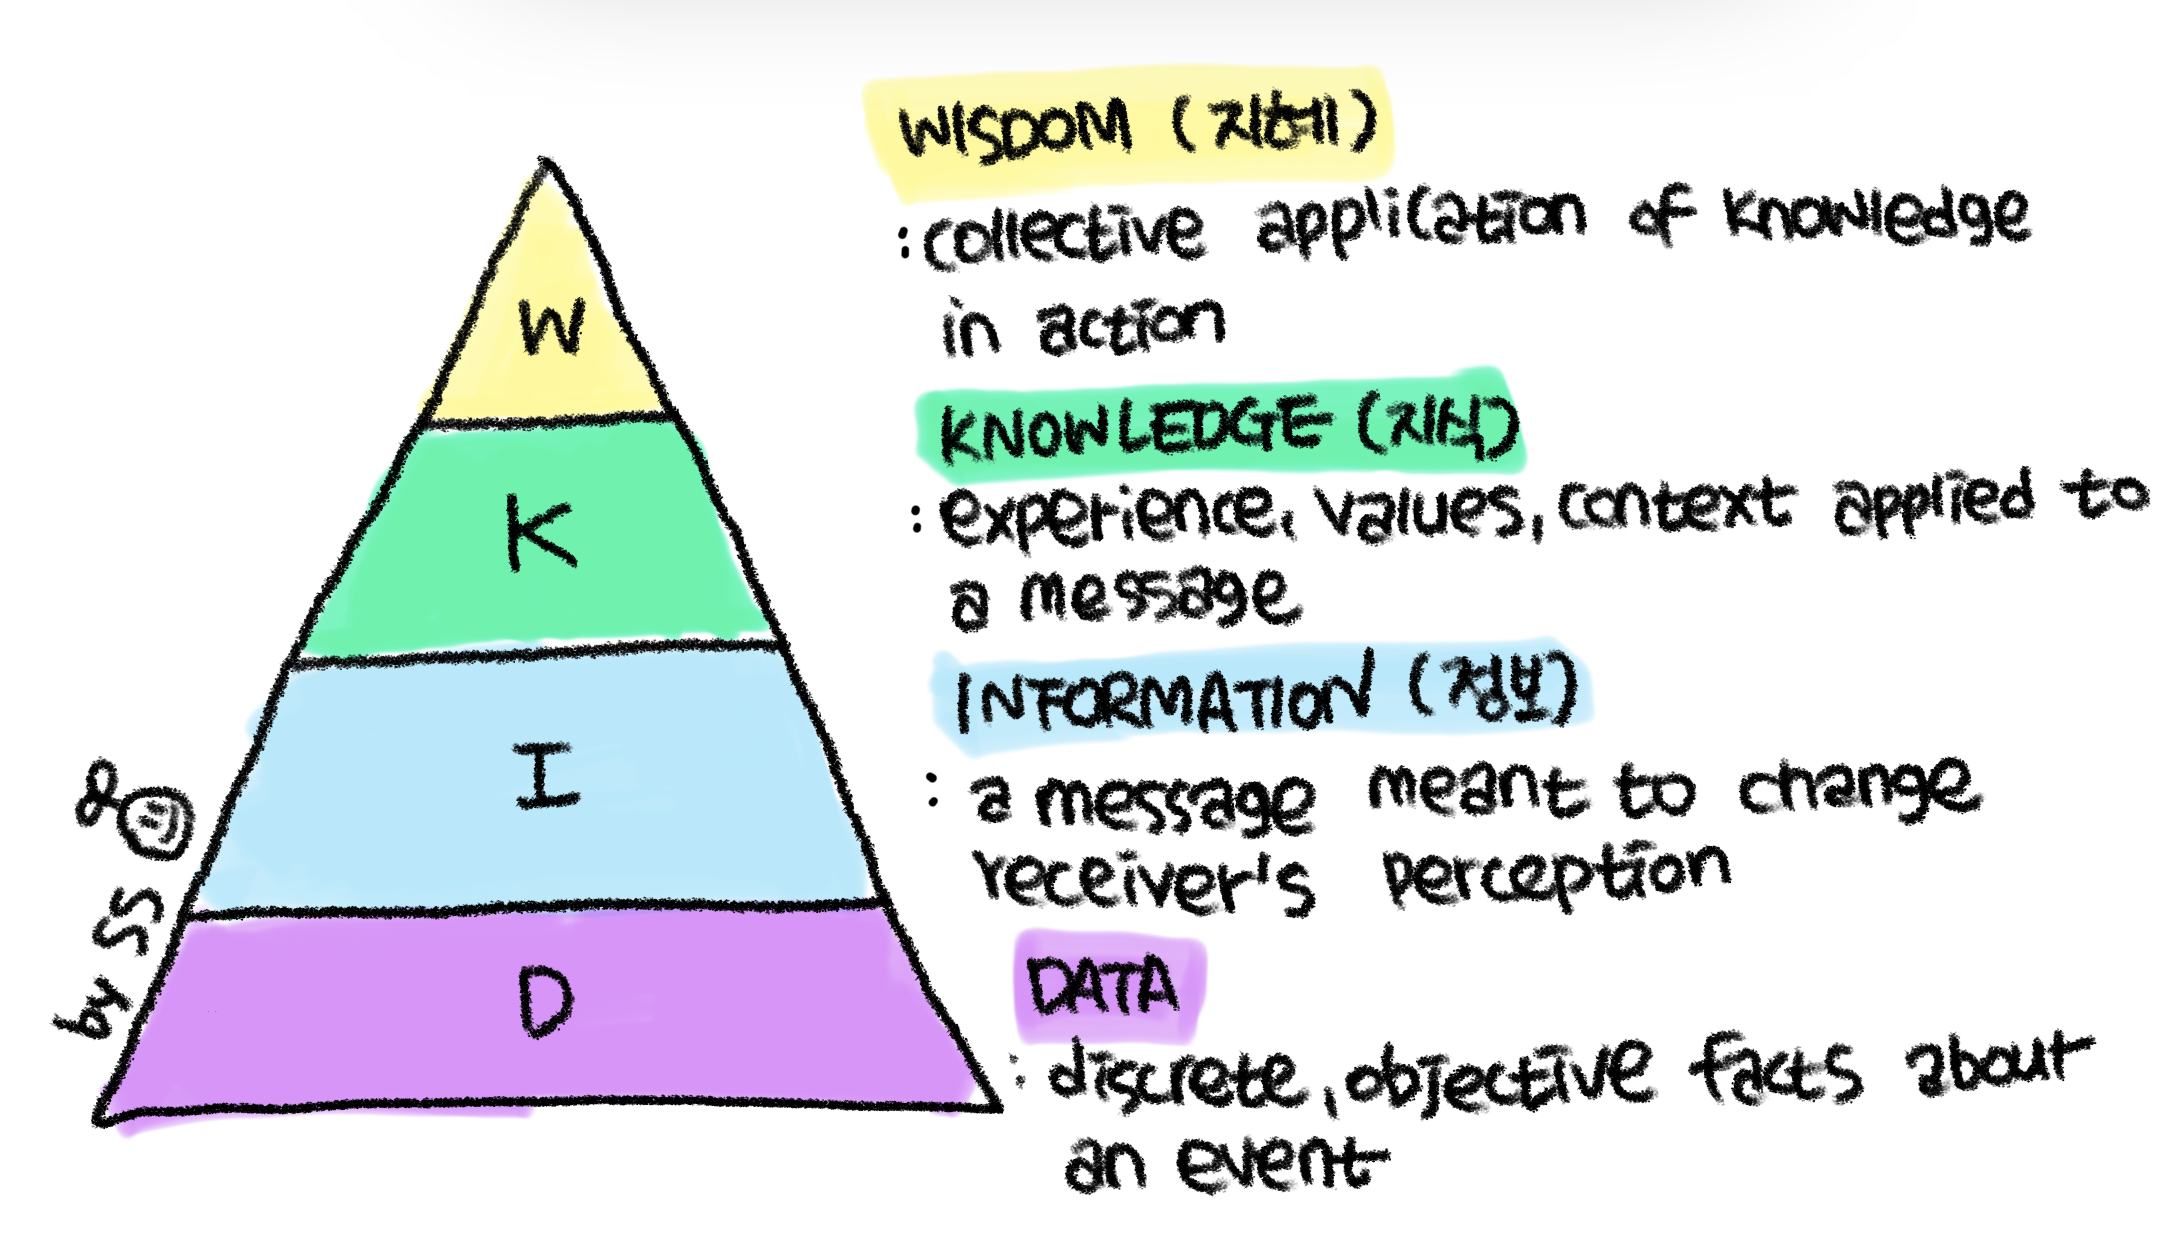 WISDOM (지혜)
: collective application of knowledge
in action
KNOWLEDGE (지식)
: experience, values, context applied to
a message
INFORMATION (정보)
: a message meant to change
receiver's perception
DATA
: discrete, objective facts about
an event
W
K
I
D
by SS